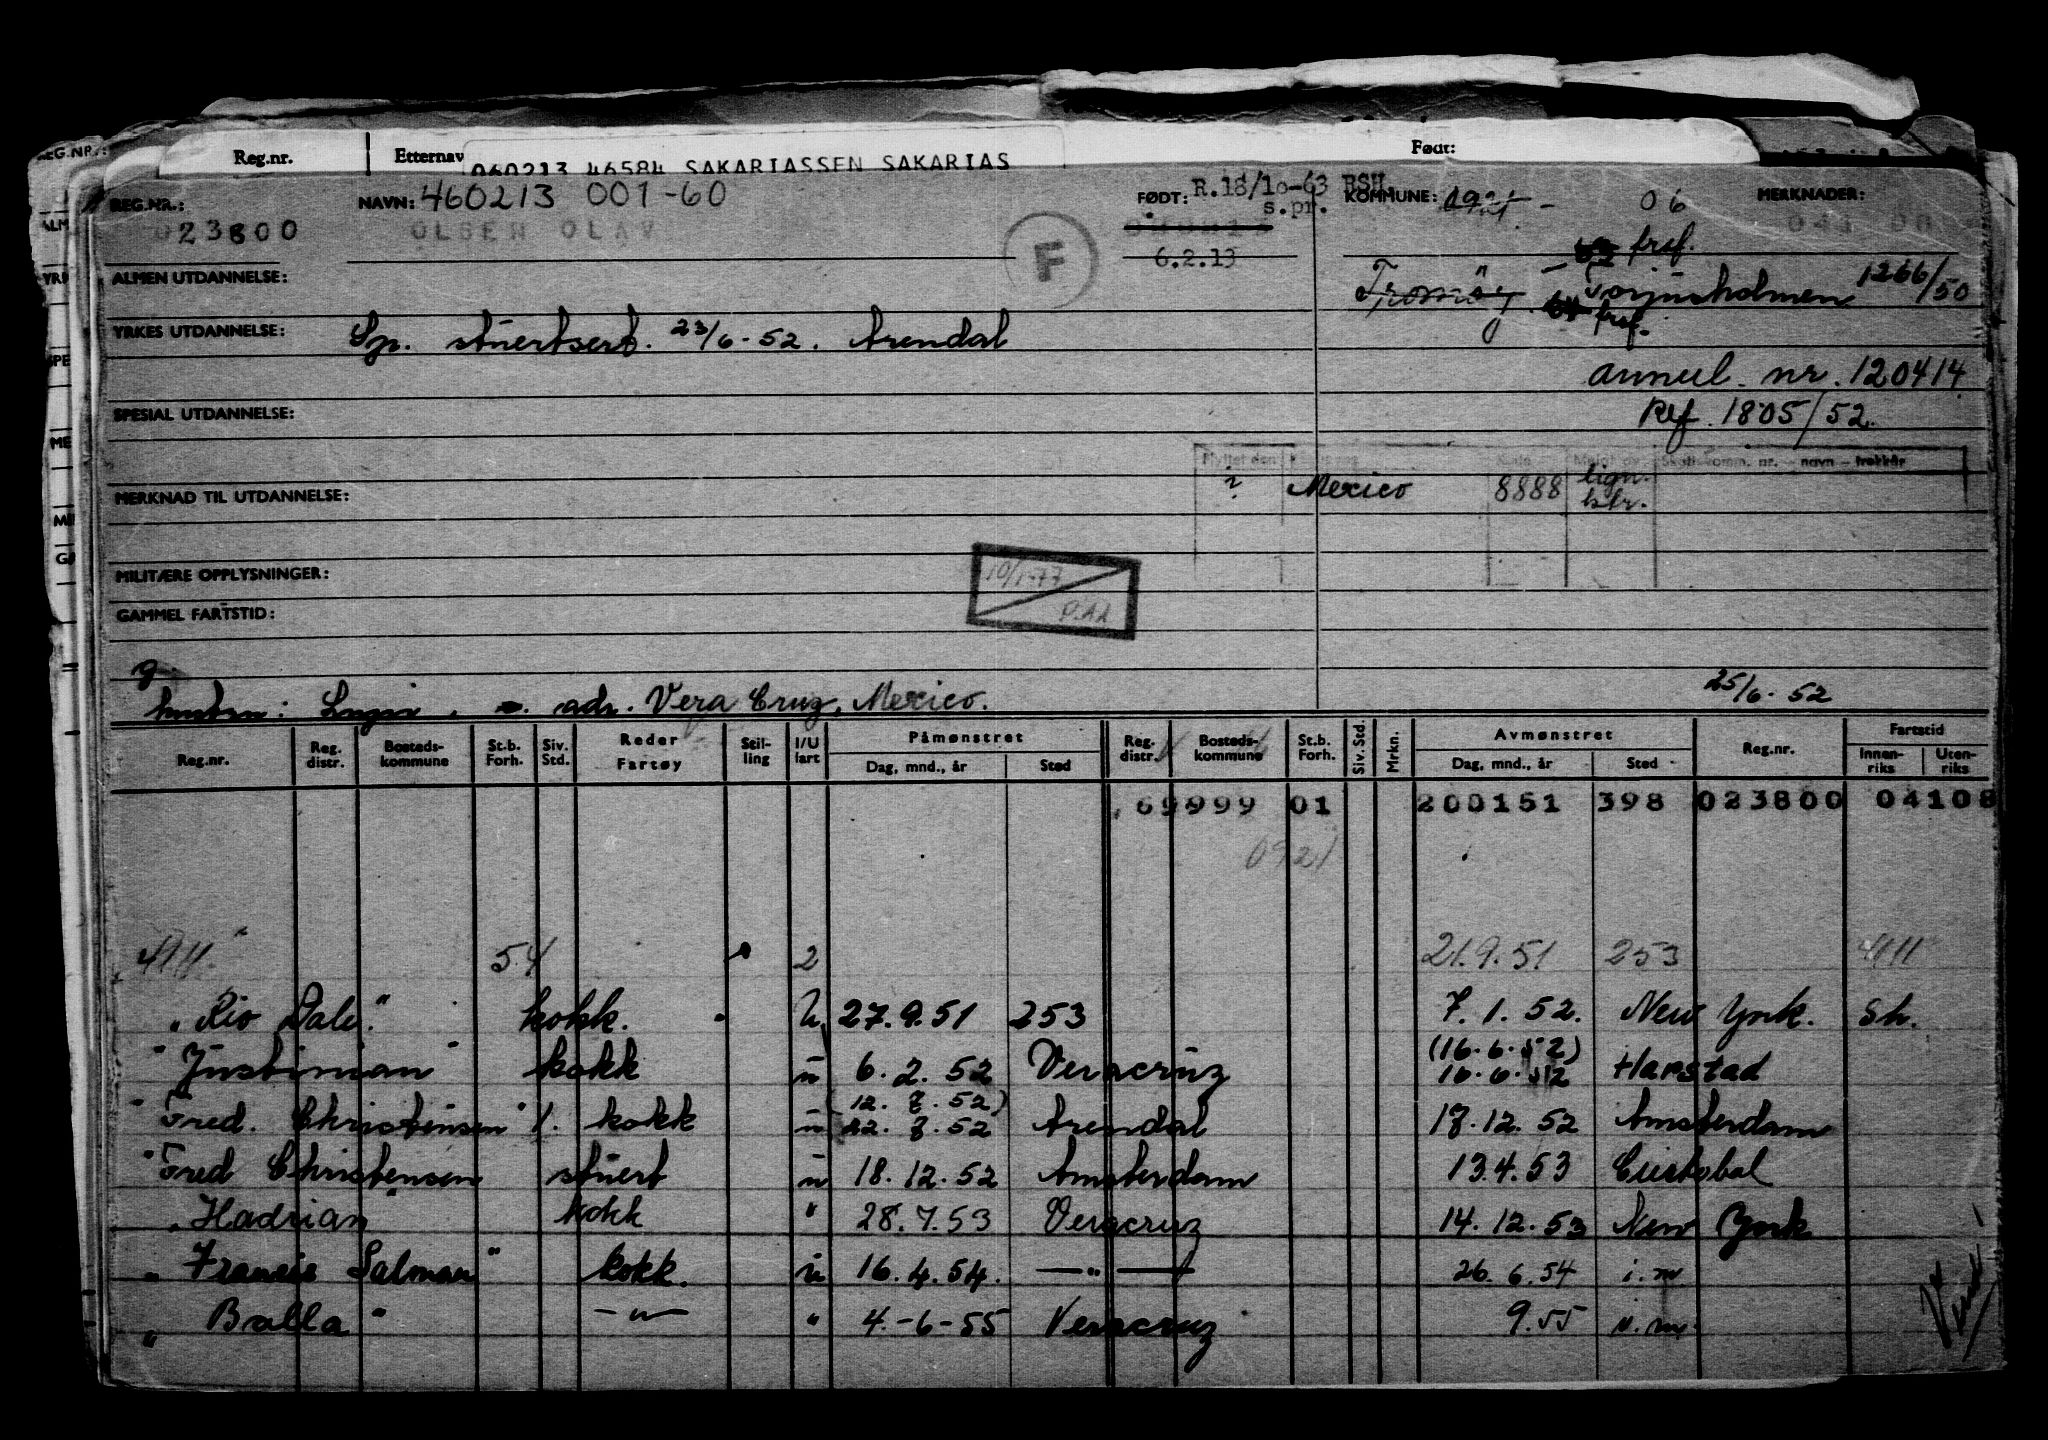 REG.NR.:
Reg.nr.
Etternav
060213 46584 SAKARIASSEN SAKARIAS
Født:
REG.NR.: 023800
NAVN: 460213 001-60
OLSEN OLAV
F
FØDT: R.18/10-63 RSH.
s.pr.
6.2.13
KOMMUNE: 0921 - 06
MERKNADER:
fraf.
Tromöy - Torjusholmen 1266/50
fraf.
ALMEN UTDANNELSE:
YRKES UTDANNELSE: Sp. stuertsert. 23/6-52. Arendal
annul. nr. 120414
SPESIAL UTDANNELSE:
Ref. 1805/52.
Flyttet den
Kode
Meldt av
Skattekomm. nr. - navn - trekkår
? Mexico 8888 lign.
ktr.
MERKNAD TIL UTDANNELSE:
MILITÆRE OPPLYSNINGER:
10/1-77
GAMMEL FARTSTID:
25/6-52
adr. Vera Cruz, Mexico.
Reg.nr.
Reg. distr.
Bosteds-kommune
St.b. Forh.
Siv. Std.
Reder Fartøy
Stil-ling
I/U fart
Påmønstret
Dag, mnd., år
Sted
Reg. distr.
Bosteds-kommune
St.b. Forh.
Siv. Std.
Mrkn.
Avmønstret
Dag, mnd., år
Sted
Reg.nr.
Fartstid
Innen-riks
Uten-riks
69999 01 200151 398 023800 04108
0921
4111 54 2 21.9.51 253 4111
"Rio Dale" kokk. U 27.9.51 253 7.1.52. New York. Sh.
(16.6.52)
"Justinian" kokk u 6.2.52 Veracruz 16.6.52 Harstad
(12.7.52)
"Fred. Christensen" 1. kokk u 22.7.52 Arendal 17.12.52 Amsterdam
"Fred Christensen stuert u 18.12.52 Amsterdam 13.4.53 Cristobal
"Hadrian" kokk " 28.7.53 Veracruz 14.12.53 New York
"Francis Salman" kokk. u 16.4.54. —"— 26.6.54 i.m
"Balla" —"— " 4.-6-55 Veracruz 9.55 i.m.